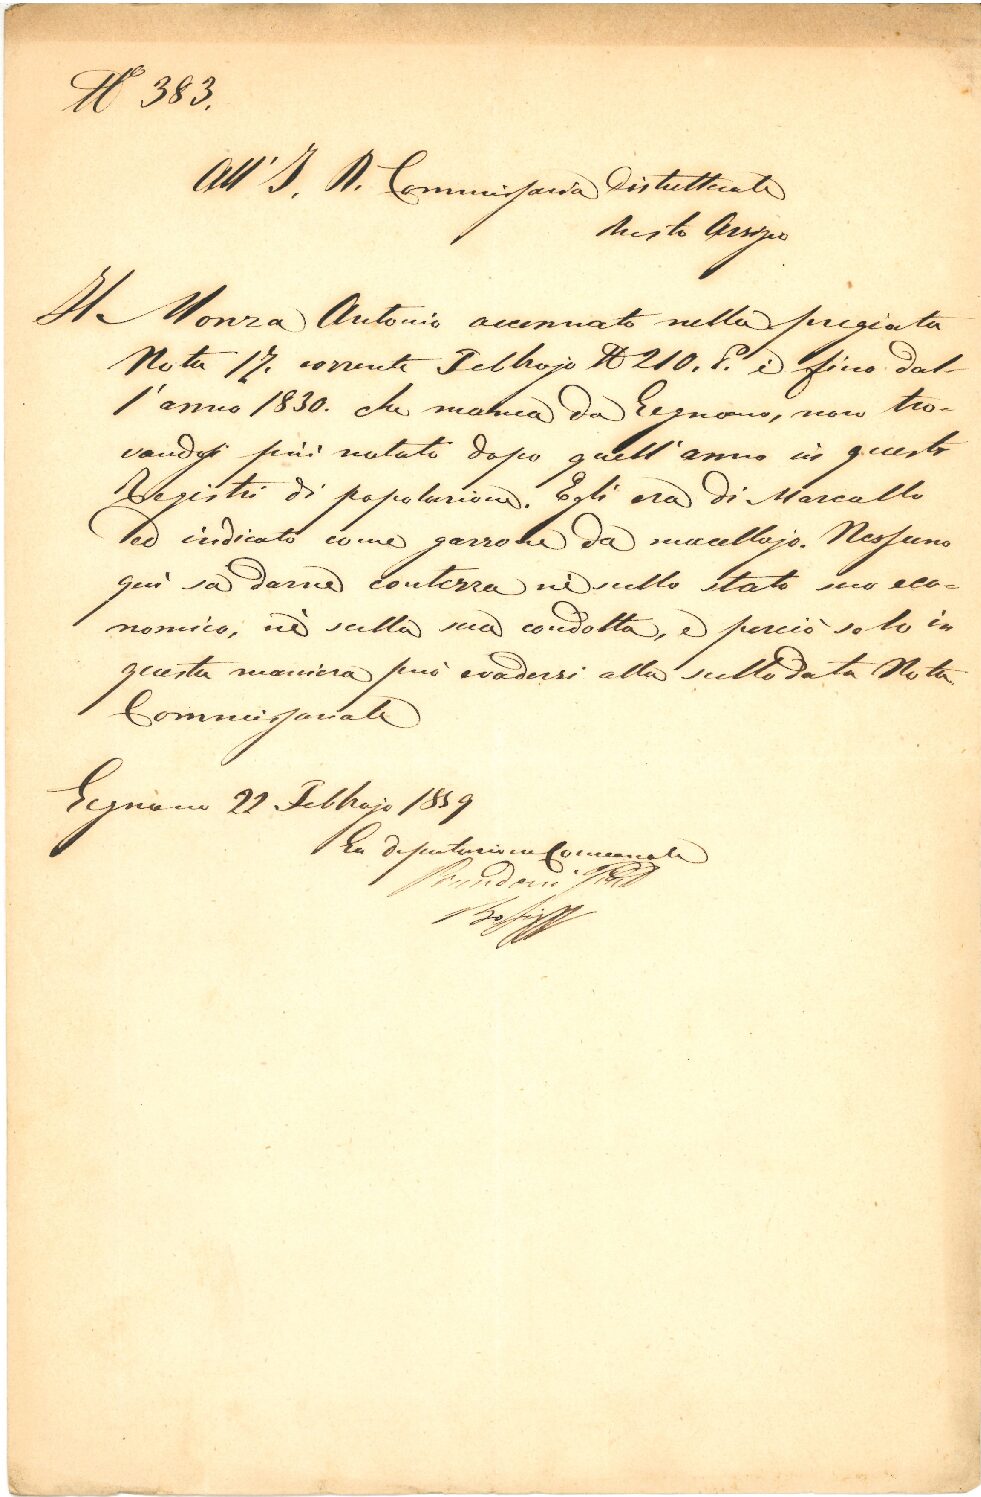 N° 383.
All' I. R. Commissaria Distrettuale
Busto Arsizio
Il Monza Antonio accennato nella pregiata
Nota 17. corrente Febbrajo N 210. P. è fino dal-
l'anno 1830. che manca da Legnano, non tro-
vandosi più notato dopo quell'anno in questi
Registri di popolazione. Egli era di Marcallo
ed indicato come garzone da macellajo. Nessuno
qui sa darne contezza nè sullo stato suo eco-
nomico, nè sulla sua condotta, e perciò solo in
questa maniera può evadersi alla sullodata Nota
Commissariale
Legnano 22 Febbrajo 1859
La deputazione Comunale